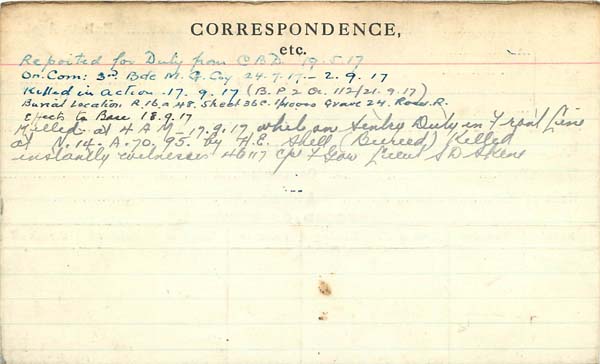 CORRESPONDENCE,
etc.
Reported for Duty from C.B.D. 19.5.17
On Com: 3rd Bde M.G. Coy 24.7.17 - 2.9.17
Killed in action 17.9.17 (B.P2 Or. 112/21.9.17)
Burial Location R.16.a.48. Sheet 36C. Grave 24. Row. R.
Effects to Base 18.9.17
Killed at 4 AM 17.9.17 while on Sentry Duty in Front Line
at N.14.A.70.95. by H.E. Shell (Buried) Killed
instantly witnesses 46117 Cpl F Gow Lieut S D Skene